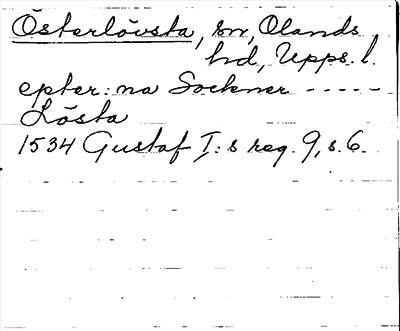 Österlövsta, sn, Olands
hd, Upps. l.
epter: na Sockner -----
Lösta
1534 Gustaf I: s reg. 9, s. 6.